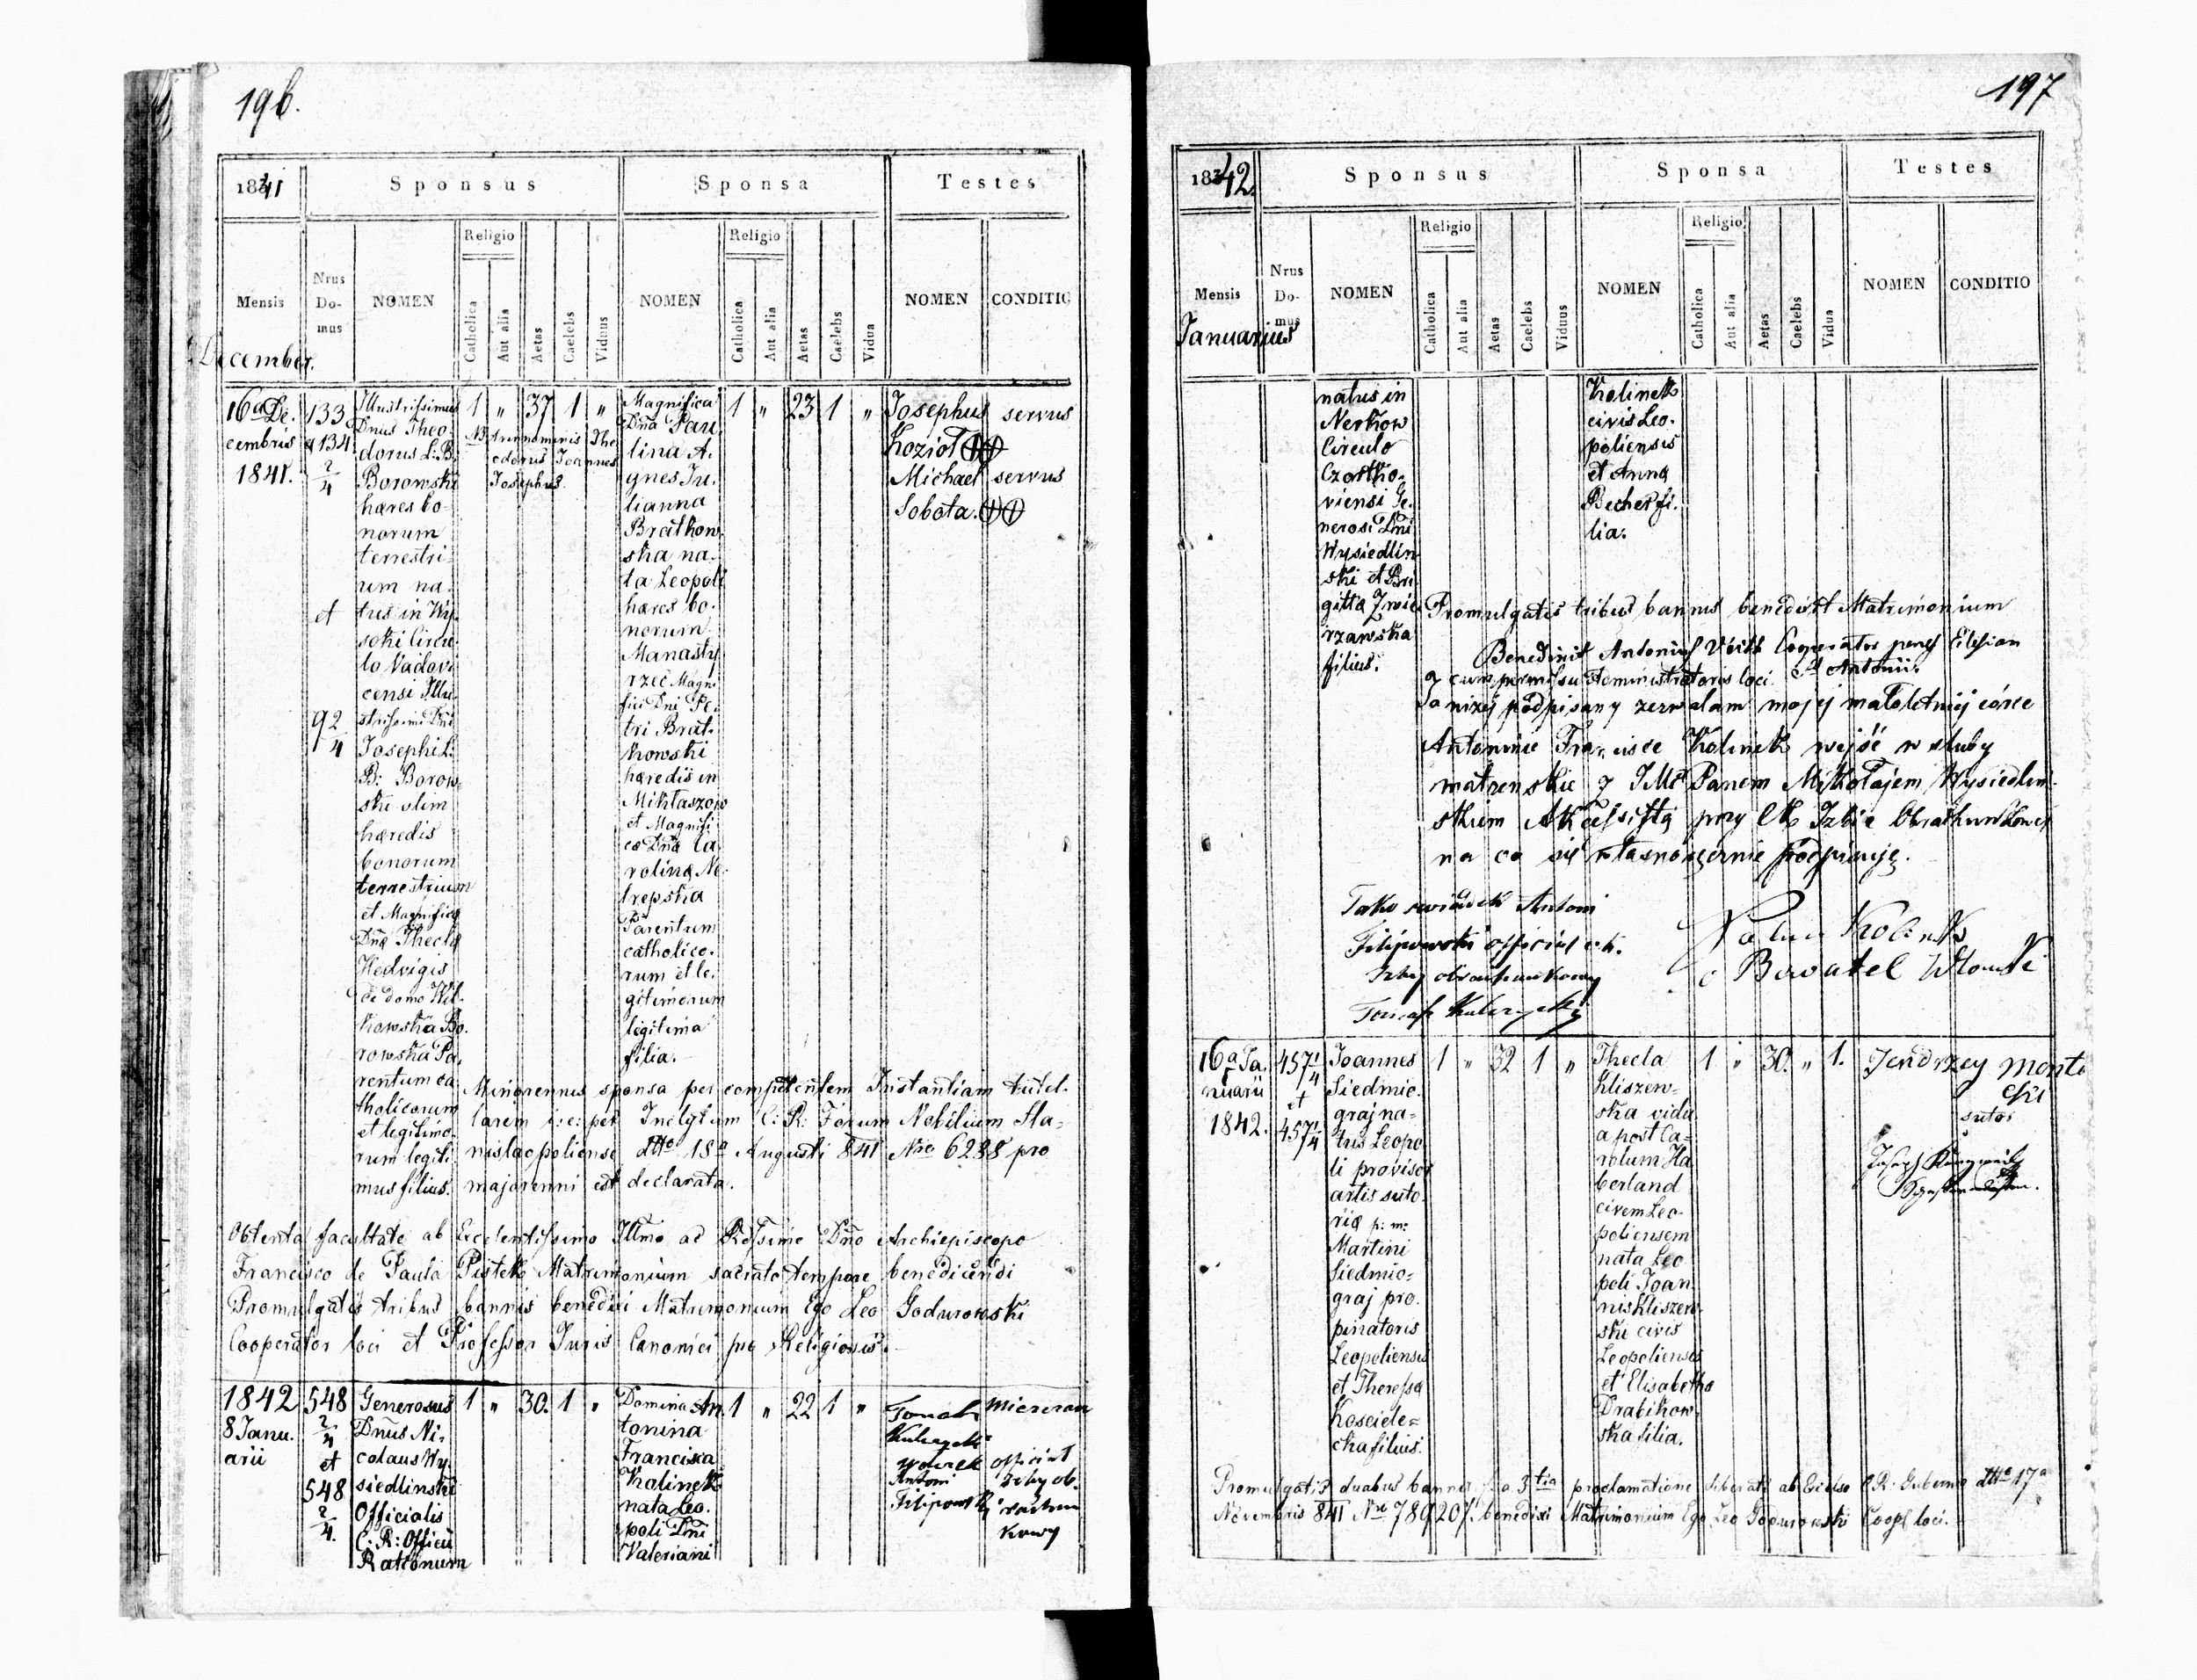 196.
1841
Sponsus
Sponsa
Testes
Mensis
December.
Nrus Do- mus
NOMEN
Religio
Catholica
Aut alia
Aetas
Caelebs
Viduus
NOMEN
Religio
Catholica
Aut alia
Aetas
Caelebs
Vidua
NOMEN
CONDITIO
16a De-
cembris
1841.
133
et 134
2/4
et
92
4
Illustrissimus
Dnus Theo-
dorus L: B:
Borowski
hæres bo-
norum
terrestri-
um na-
tus in Wy-
socki Circu-
lo Vadovi-
censi Illu-
strissimi Dni
Josephi L:
B: Borow-
ski olim
hæredis
bonorum
terrestrium
et Magnificæ
Dnæ Thecla
Hedvigis
de domo
kowska Bo-
rowska Pa-
rentum ca-
tholicorum
et legitimo-
rum legiti-
mus filius.
1 " 37 1 "
NB. trinominis The
odorus Joannes
Josephus
Magnifica
Dna Pau-
lina A-
gnes Ju-
lianna
Bratkow-
ska na-
ta Leopoli
hæres bo-
norum
Manasty-
rzec Magni-
fici Dni Pe-
tri Brat-
kowski
hæredis in
Miktaszow
et Magnifi-
cæ Dnæ Ca-
rolinæ Ne-
trepska
Parentum
catholico-
rum et le-
gitimorum
legitima
filia.
1 " 23 1 "
Josephus
Kozioł ++
Michael
Sobota. ++
servus
servus
Minorennis sponsa per competentem Instantiam tutel-
larem i: e: per Inclytum C: R: Forum Nobilium Sta-
nislaopoliense ddto 18a Augusti 841 Nro 6288 pro
majorenni est declarata.
Obtenta facultate ab Excelentissimo Illmo ac Rdssimo Dno Archiepiscopo
Francisco de Paula Pistek Matrimonium sacrato tempore benedicendi
Promulgatis tribus bannis benedixi Matrimonium Ego Leo Godurowski
Cooperator loci et Professor Juris Canonici pro Religiosis.
1842
8 Janu-
arii
548
2/4
et
548
2/4.
Generosus
Dnus Ni-
colaus Wy-
siedlinski
Officialis
C: R: Officii
Rationum
1 " 30. 1 "
Domina An-
tonina
Francisca
Kalinek
nata Leo-
poli Dni
Valeriani
1 " 22 1 "
Tomasz
Antoni
Filipowski
official
Izby ob-
rachun
kowy
197
1842.
Sponsus
Sponsa
Testes
Mensis
Januarius
Nrus Do- mus
NOMEN
Religio
Catholica
Aut alia
Aetas
Caelebs
Viduus
NOMEN
Religio
Catholica
Aut alia
Aetas
Caelebs
Vidua
NOMEN
CONDITIO
natus in
Nerkow
Circulo
Czortko-
viensi Ge-
nerosi Dni
Wysiedlin
ski et Bri-
gitta Zwie
rzawska
filius.
Kalinek
civis Leo-
poliensis
et Anna
Becher fi-
lia.
Promulgatis tribus bannis benedixit Matrimonium
Benedixit Antonius Cooperator penes Eclesiam
St Antonii.
cum permissu Administratoris loci
Ja niżej podpisany zezwalam mojej małoletniéj córce
Antoninie Francisce Kalinek wejść w śluby
małżenskie z JMć Panem Mikołajem Wysiedlin-
skim Akcessistą przy CK Izbie Obrachunkowéj
na co się własnoręcznie podpisuję.
Jako swiadek Antoni
Filipowski official ck.
Izby obrachunkowey
Tomasz
16a Ja-
nuarii
1842.
457 1/4
et
457 1/4
Joannes
Siedmio-
graj na-
tus Leopo-
li provisor
artis suto-
riæ p: m:
Martini
Siedmio-
graj pro-
pinatoris
Leopoliensis
et Theressa
Koscielec-
cka filius.
1 " 32 1 "
Thecla
Kliszew-
ska vidu
a post Ca-
rolum Ha
berland
civem Leo-
poliensem
nata Leo
poli Joan
nis Kliszew-
ski civis
Leopoliensis
et Elisabetha
Drabikow-
ska filia.
1 " 30. " 1.
Jendrzey
sutor
Joseph
Promulgatis duabus bannis a 3tia proclamatione liberati ab Excelso C: R: Gubernio ddto 17a
Novembris 841 Nro 78920/. benedixi Matrimonium Ego Leo Godurowski Coop: loci.